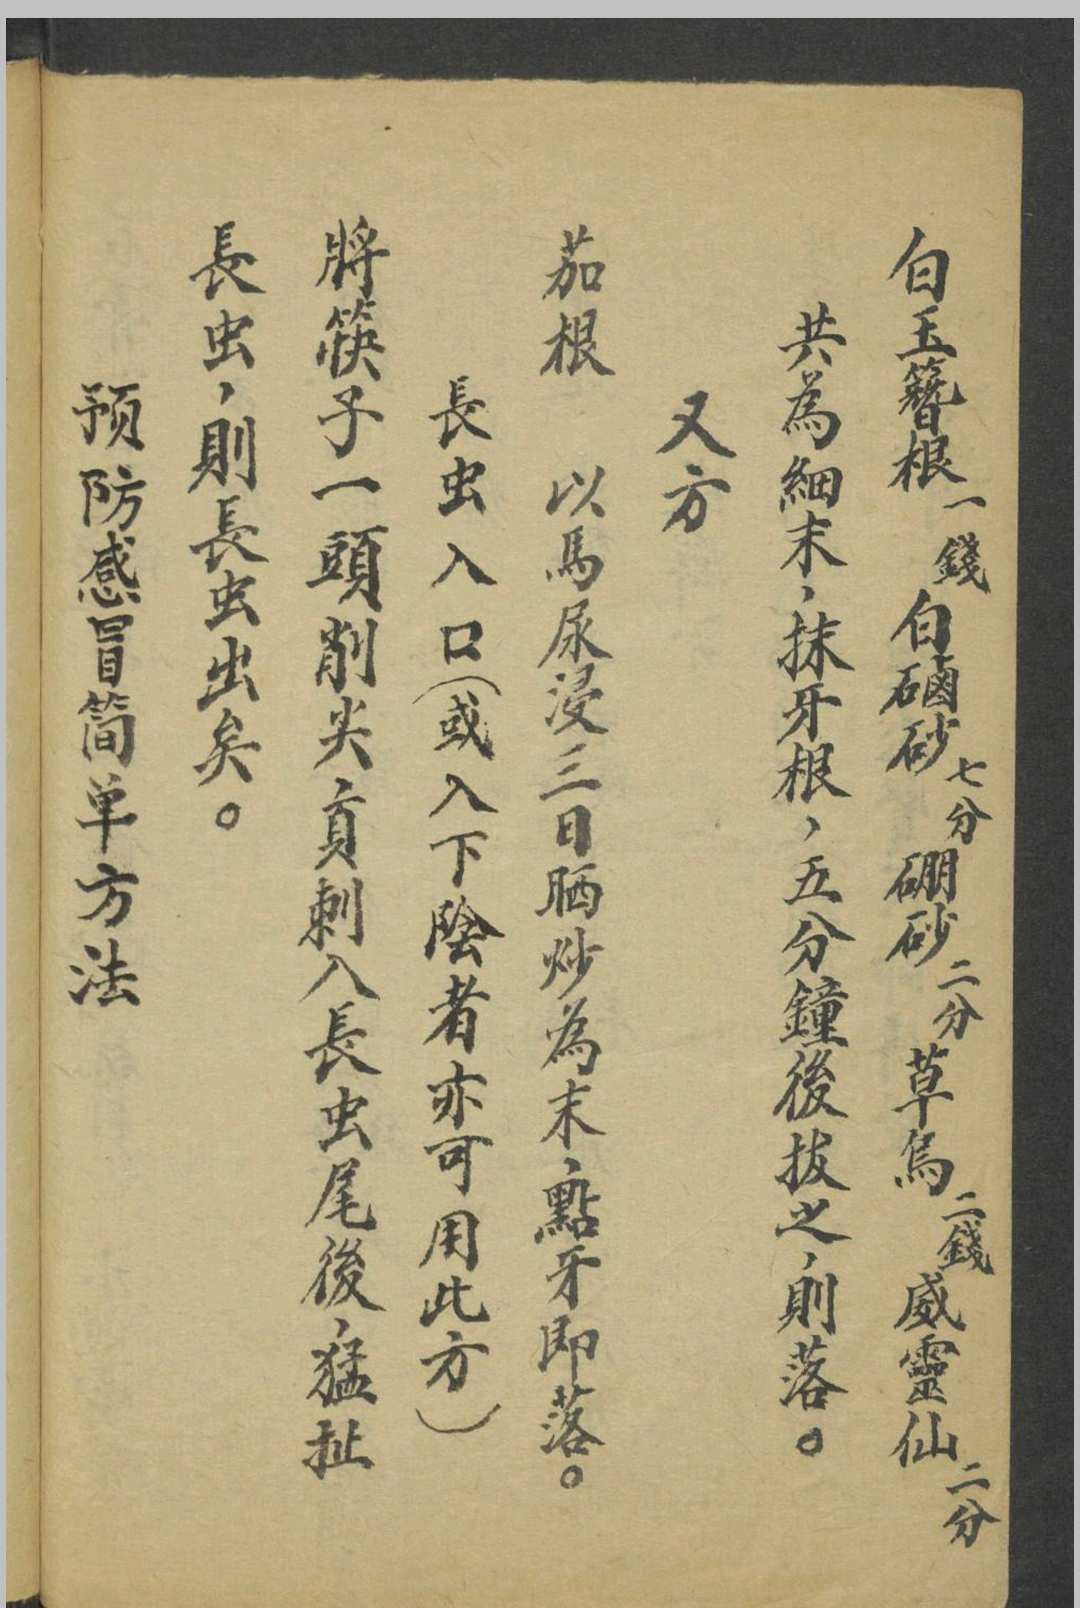 白玉簪根一錢白磠砂七分硼砂二分草烏二錢威靈仙二分
共為細末，抹牙根，五分鐘後拔之，則落。
又方
茄根 以馬尿浸三日晒炒為末，點牙即落。
長虫入口（或入下陰者亦可用此方）
將筷子一頭削尖，貢刺入長虫尾後，猛扯
長虫，則長虫出矣。
预防感冒简单方法